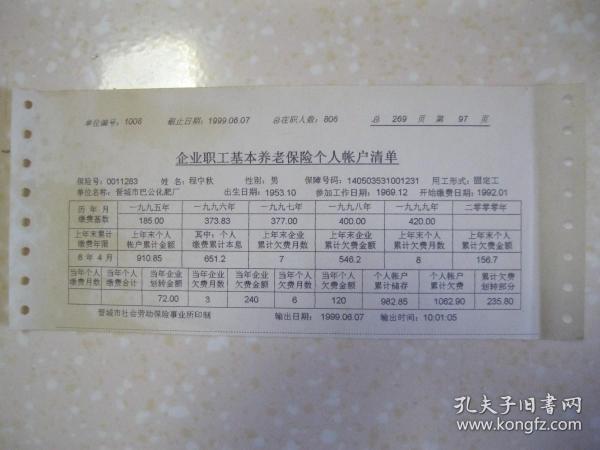 单位编号：1008 截止日期：1999.06.07 总在职人数：806 总 269 页 第 97 页
企业职工基本养老保险个人帐户清单
保险号：0011283 姓 名：程宁秋 性别：男 保障号码：140503531001231 用工形式：固定工
单位名称：晋城市巴公化肥厂 出生日期：1953.10 参加工作日期：1969.12 开始缴费日期：1992.01
历 年 月 缴费基数 一九九五年 一九九六年 一九九七年 一九九八年 一九九九年 二零零零年
185.00 373.83 377.00 400.00 420.00
上年末累计缴费年限 上年末个人帐户累计金额 其中：个人缴费累计本息 上年末企业累计欠费月数 上年末企业累计欠费金额 上年末个人累计欠费月数 上年末个人累计欠费金额
6 年 4 月 910.85 651.2 7 546.2 8 156.7
当年个人缴费月数 当年个人缴费合计 当年企业划转金额 当年企业欠费月数 当年企业欠费金额 当年个人欠费月数 当年个人欠费金额 个人帐户累计储存 个人帐户累计金额 累计欠费划转部分
72.00 3 240 6 120 982.85 1062.90 235.80
晋城市社会劳动保险事业所印制 输出日期：1999.06.07 输出时间：10:01:05
孔夫子旧书网
www.kongfz.com